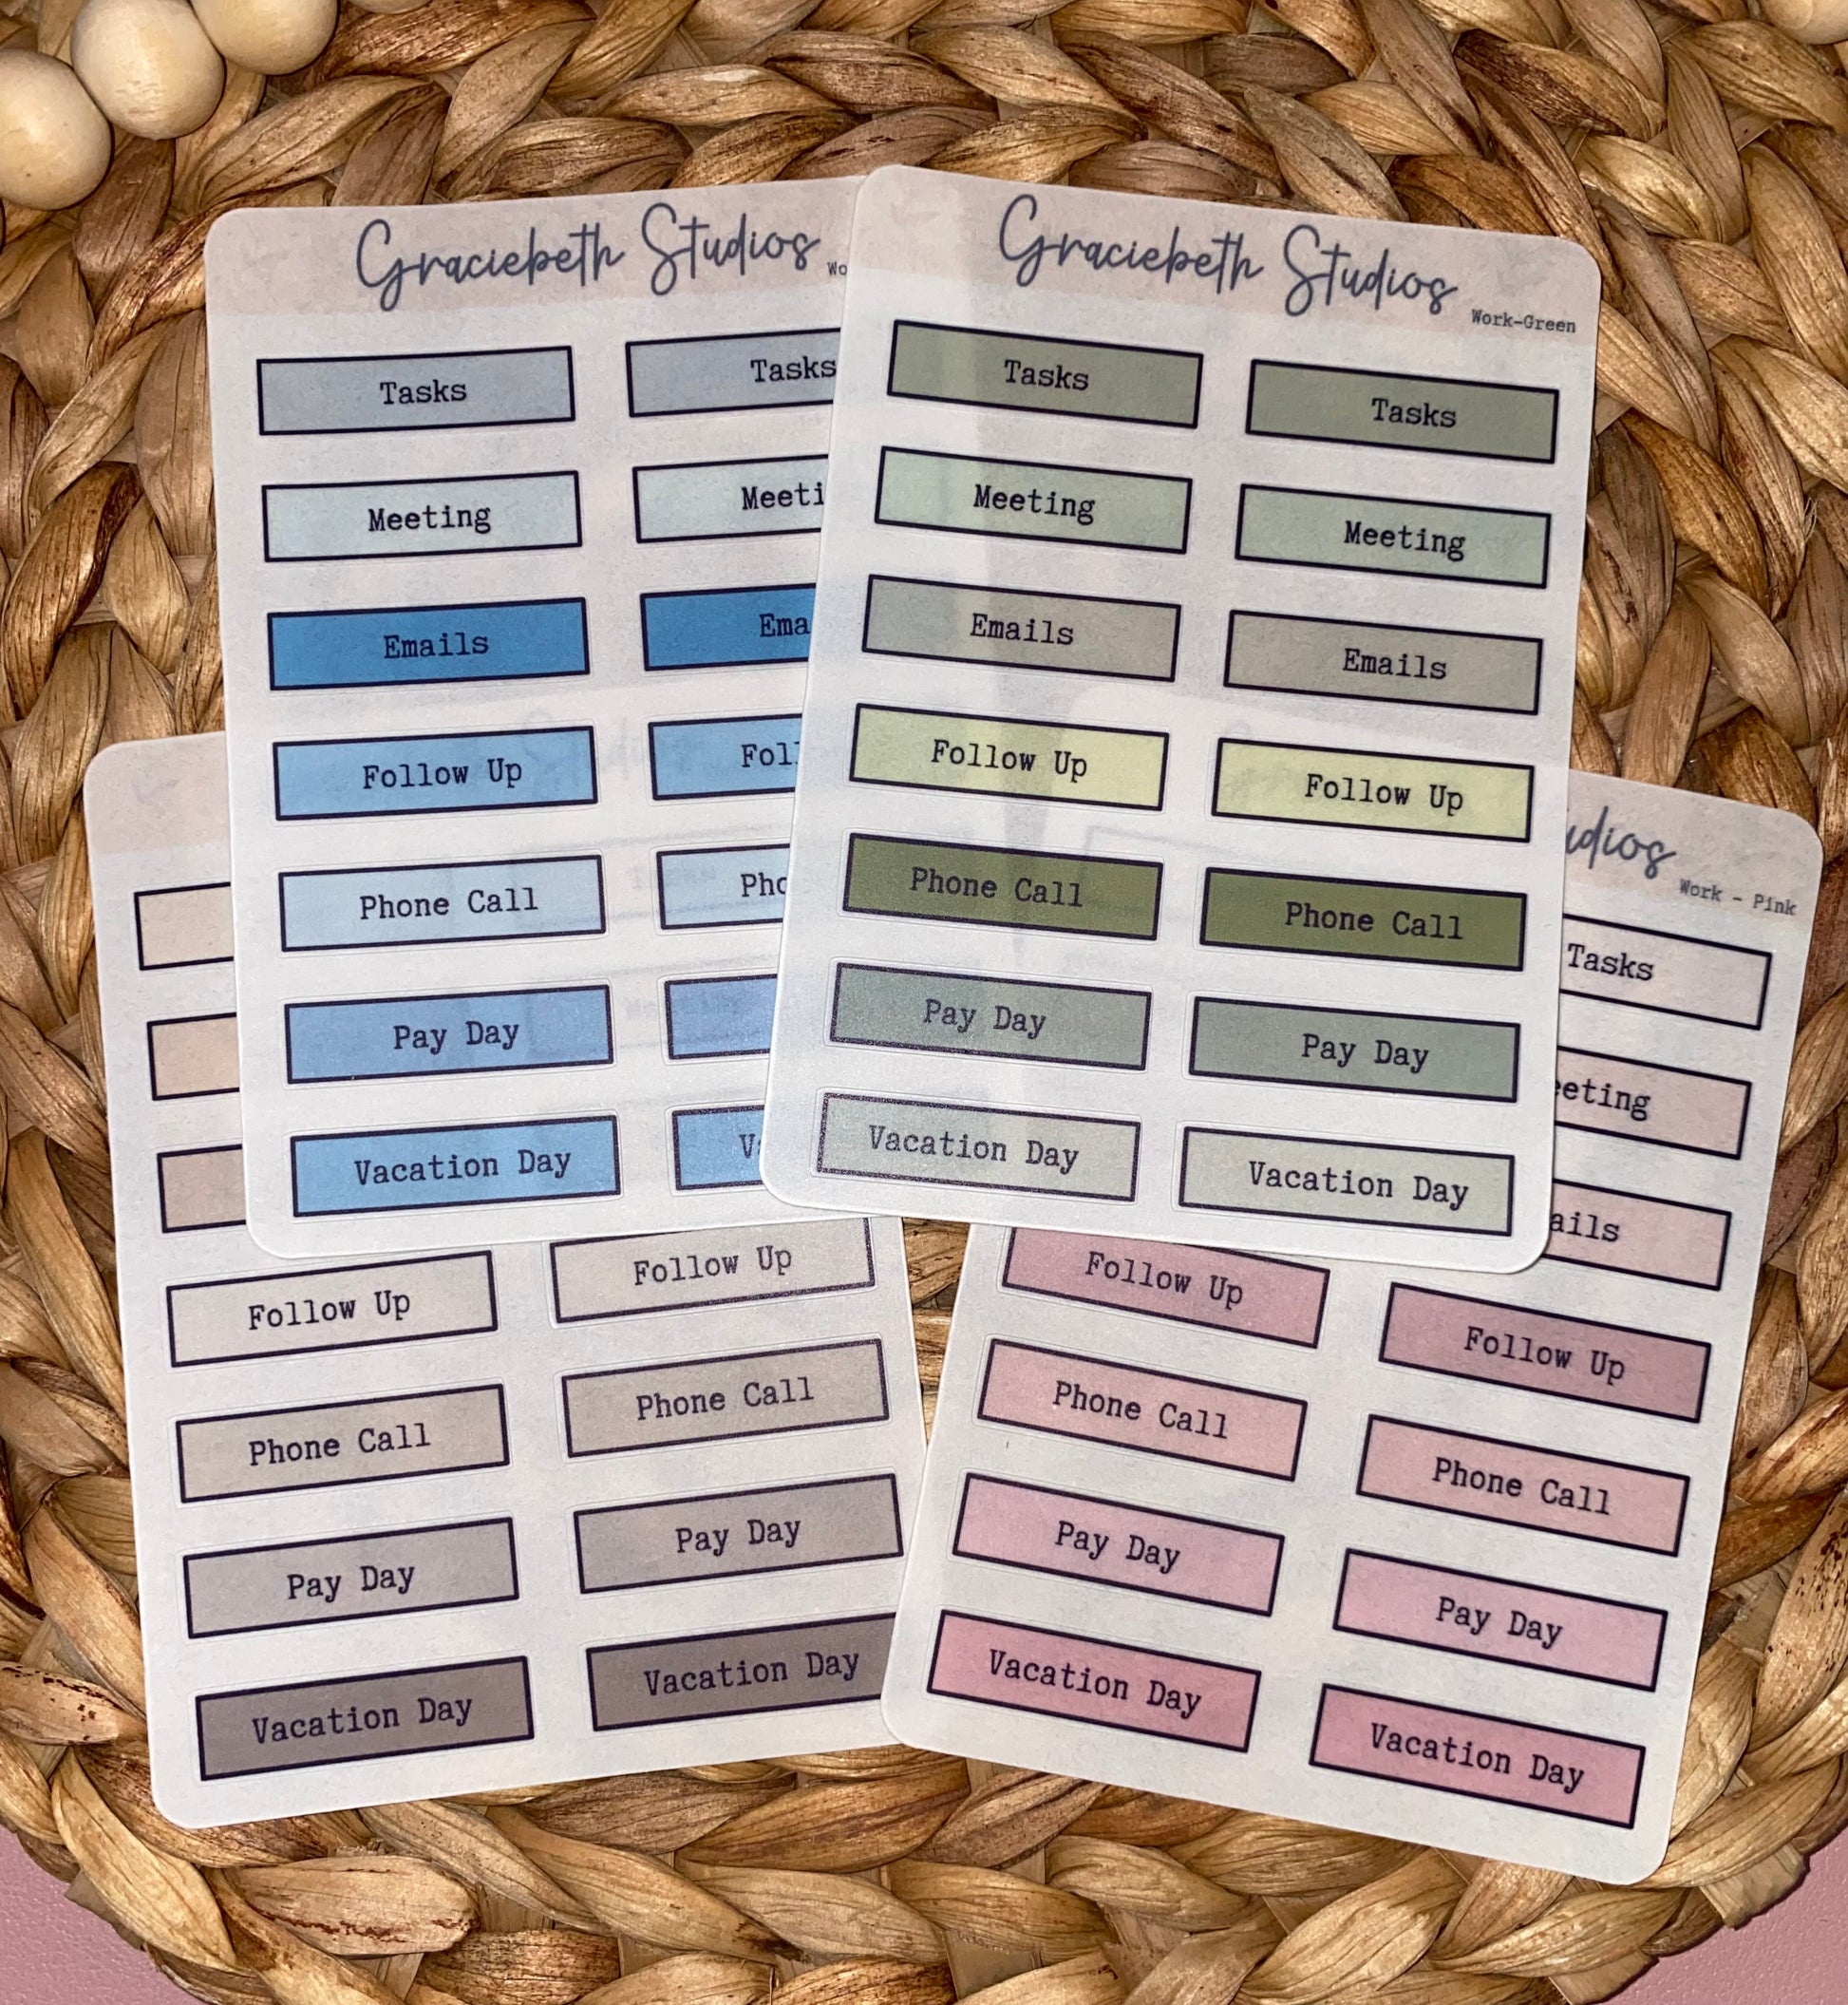 Graciebeth Studios
Wo
Tasks Tasks
Meeting Meeti
Emails Ema
Follow Up Foll
Phone Call Pho
Pay Day
Vacation Day Va
Graciebeth Studios
Work-Green
Tasks Tasks
Meeting Meeting
Emails Emails
Follow Up Follow Up
Phone Call Phone Call
Pay Day Pay Day
Vacation Day Vacation Day
Follow Up Follow Up
Phone Call Phone Call
Pay Day Pay Day
Vacation Day Vacation Day
udios
Work - Pink
Tasks
eeting
ails
Follow Up Follow Up
Phone Call Phone Call
Pay Day Pay Day
Vacation Day Vacation Day